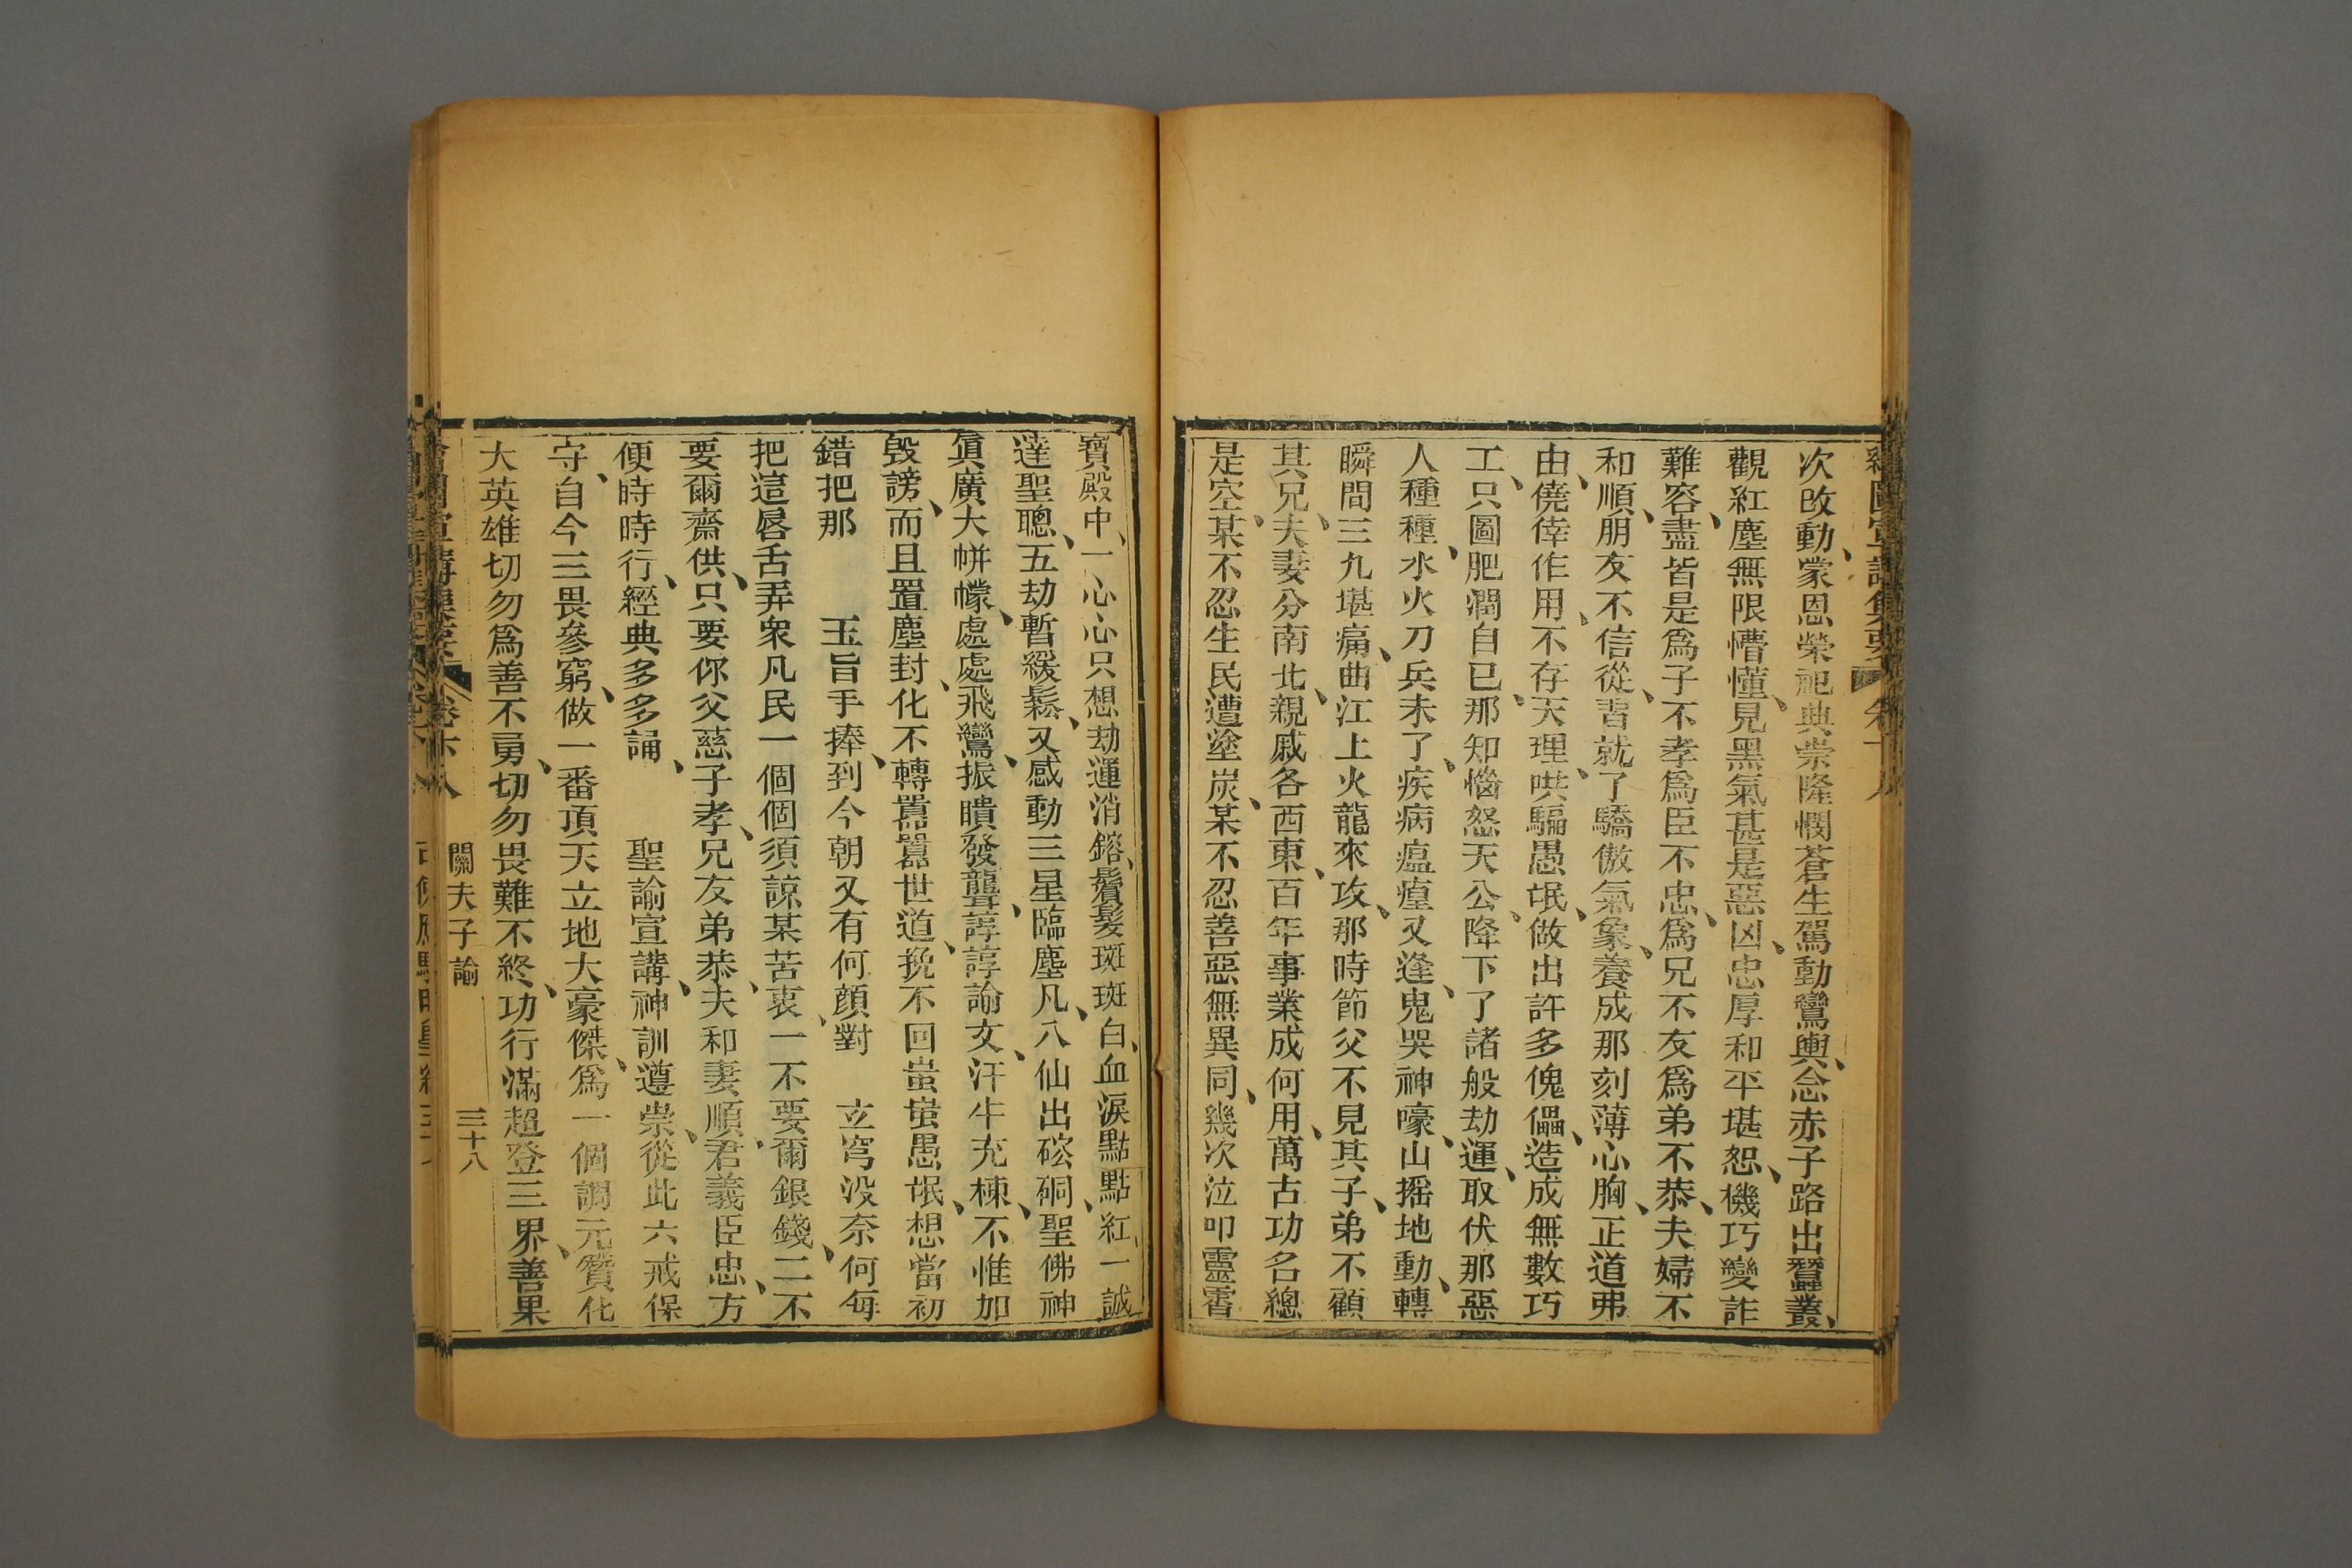 次改動、蒙恩榮祀典崇隆憫蒼生駕動鸞輿、念赤子路出蠶叢、
觀紅塵無限懵懂、見黑氣甚是惡凶、忠厚和平堪恕、機巧變詐
難容、盡皆是爲子不孝爲臣不忠、爲兄不友爲弟不恭、夫婦不
和順、朋友不信從、習就了驕傲氣象、養成那刻薄心胸、正道弗
由、僥倖作用、不存天理、哄騙愚氓、做出許多傀儡、造成無數巧
工、只圖肥潤自已、那知惱怒天公、降下了諸般劫運、取伏那惡
人種種、水火刀兵未了、疾病瘟癀又逢、鬼哭神嚎、山搖地動、轉
瞬間三九堪痛、曲江上火龍來攻、那時節父不見其子、弟不顧
其兄、夫妻分南北、親戚各西東、百年事業成何用、萬古功名總
是空、某不忍生民遭塗炭、某不忍善惡無異同、幾次泣叩靈霄
寶殿中、一心心只想劫運消鎔、鬢髮斑斑白、血淚點點紅、一誠
達聖聰、五劫暫緩鬆、又感動三星臨塵凡、八仙出硿硐、聖佛神
眞廣大帡幪、處處飛鸞、振瞶發聾、諄諄諭文、汗牛充棟、不惟加
毀謗、而且置塵封、化不轉囂囂世道、挽不回蚩蚩愚氓、想當初
錯把那　玉旨手捧、到今朝又有何顔對　立穹没奈何每
把這唇舌弄衆凡民一個個須諒某苦衷、一不要爾銀錢、二不
要爾齋供、只要你父慈子孝、兄友弟恭、夫和妻順、君義臣忠、方
便時時行、經典多多誦、　聖諭宣講、神訓遵崇、從此六戒保
守、自今三畏參窮、做一番頂天立地大豪傑、爲一個調元贊化
大英雄切勿爲善不勇、切勿畏難不終、功行滿超登三界、善果
關夫子諭
三十八